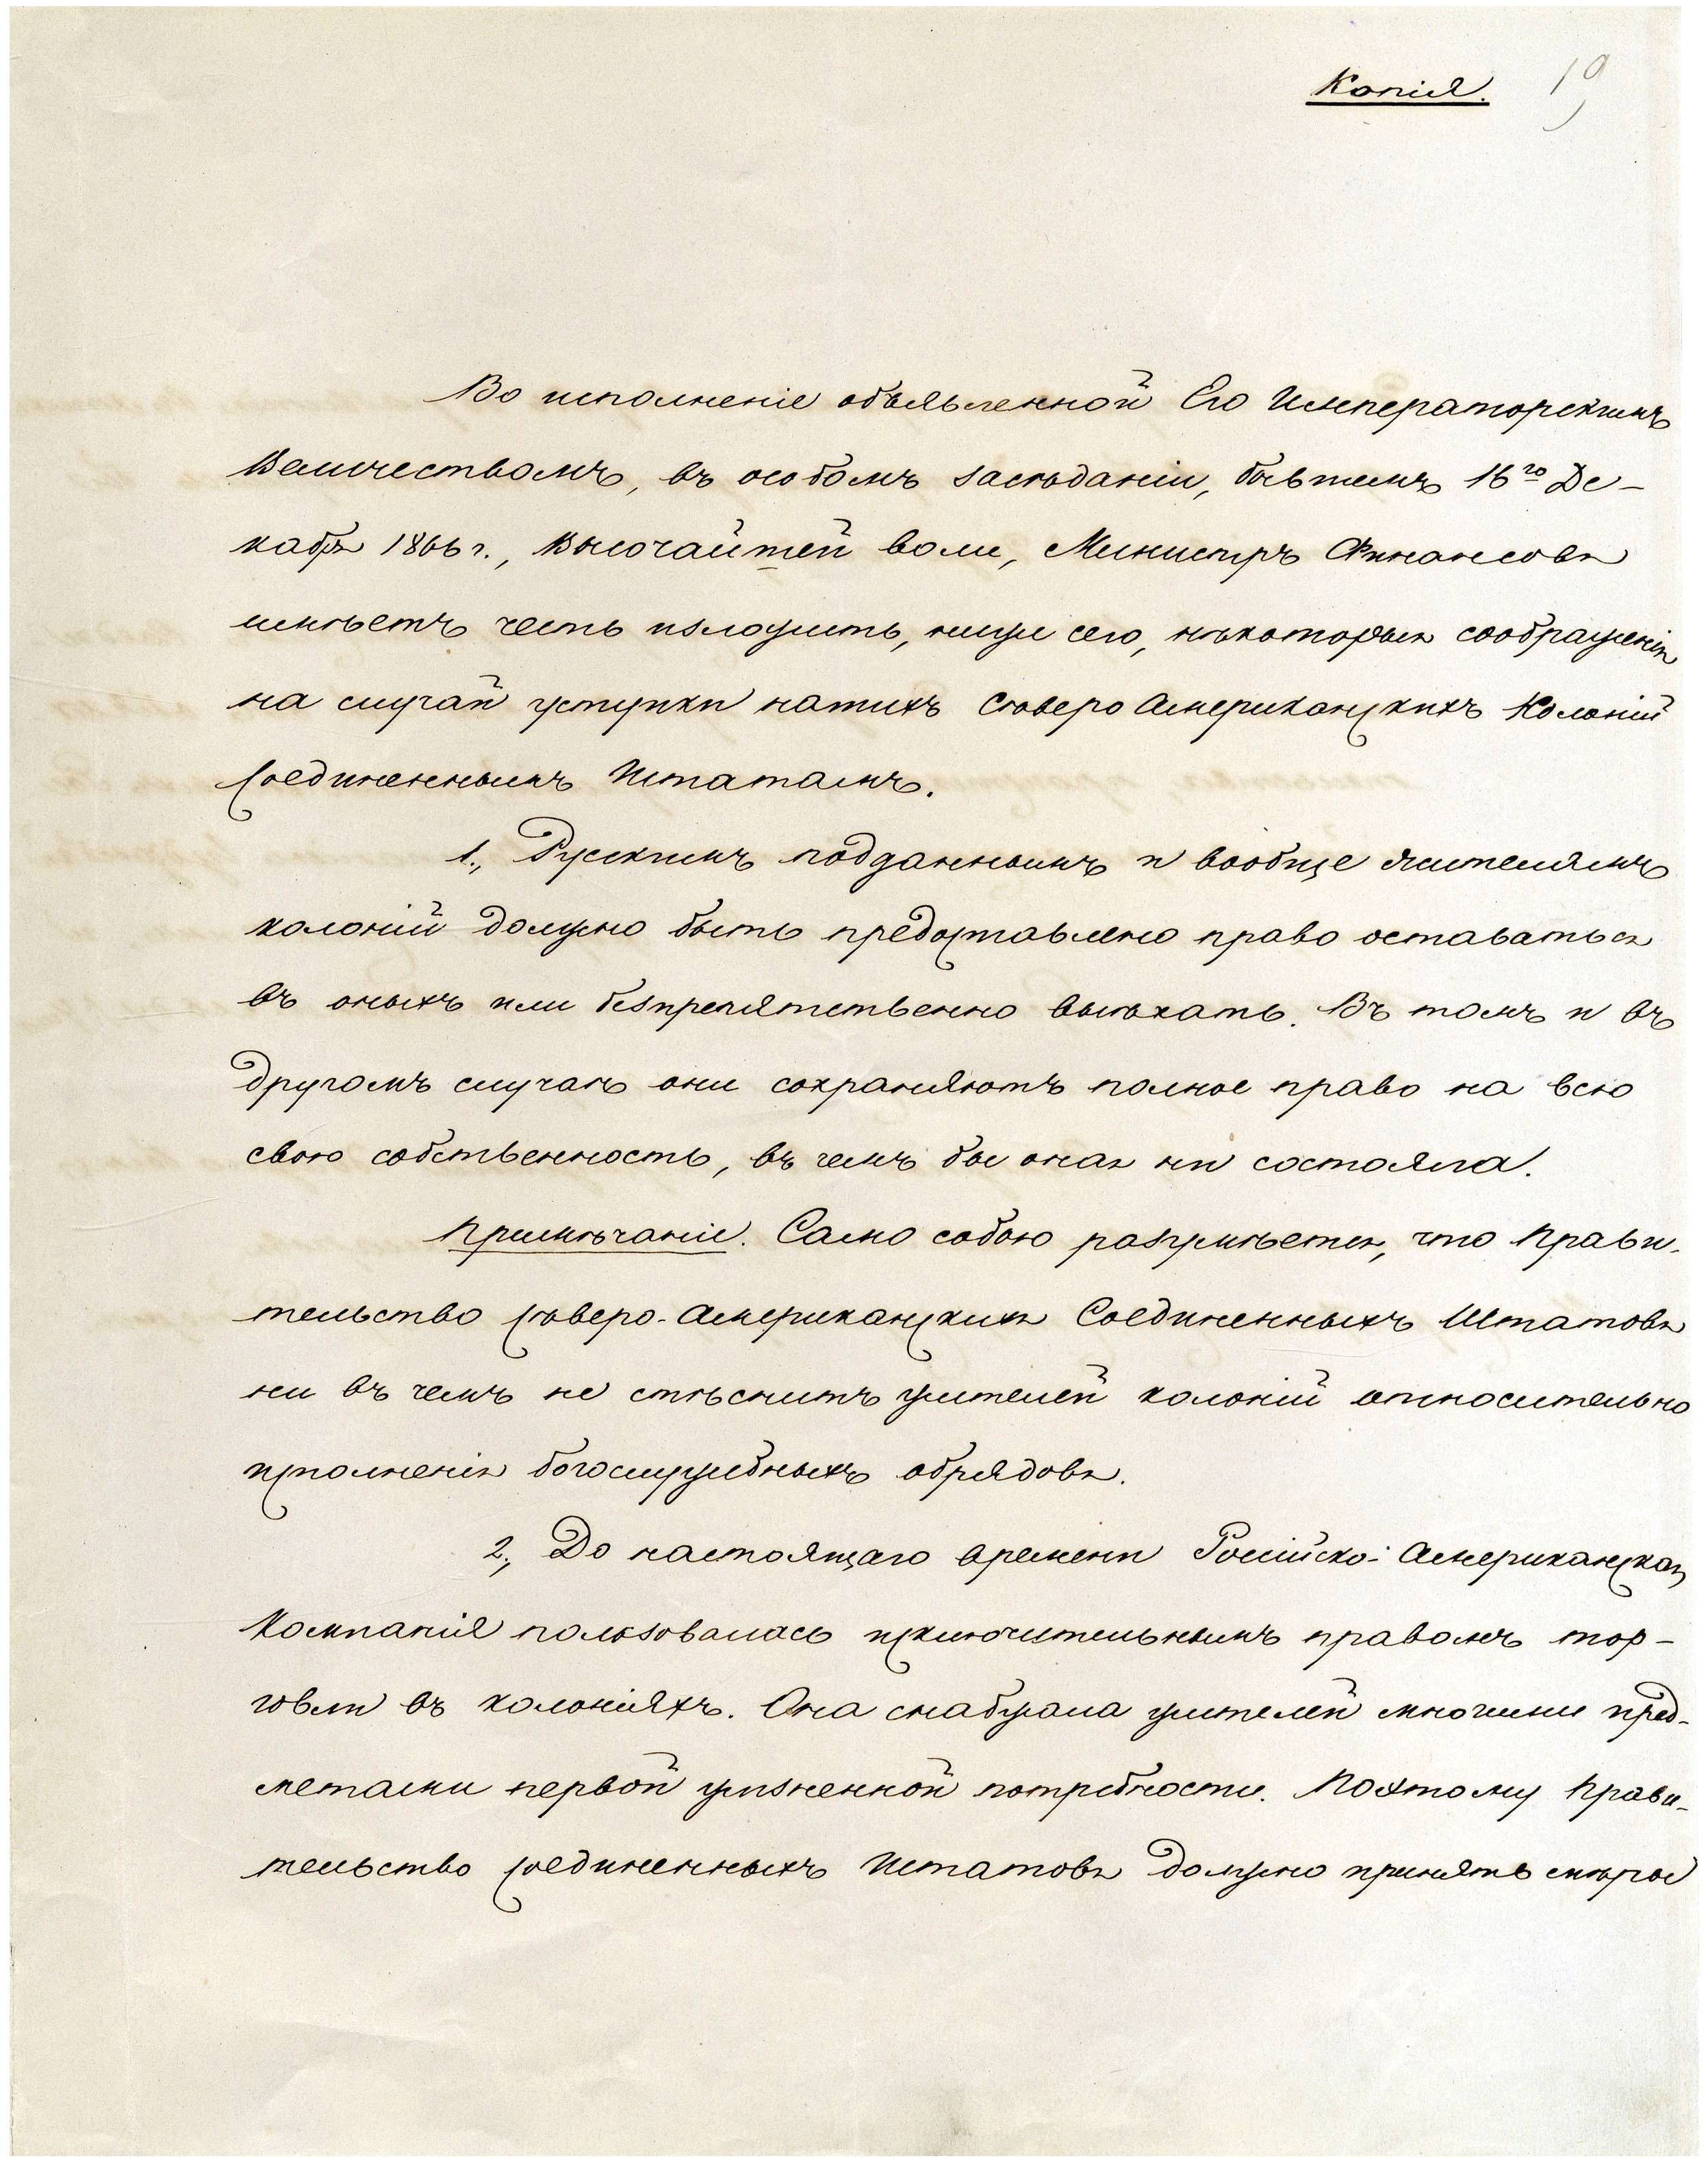 Копія. 19
Во исполненіе объявленной Его Императорскимъ
Величествомъ, въ особомъ засѣданіи, бывшемъ 16го Де-
кабря 1866 г., Высочайшей воли, Министръ Финансовъ
имѣетъ честь изложить, ниже сего, нѣкоторыя соображенія
на случай уступки нашихъ Сѣверо Американскихъ Колоній
Соединеннымъ Штатамъ.
1., Русскимъ подданнымъ и вообще жителямъ
колоній должно быть предоставлено право оставаться
въ оныхъ или безпрепятственно выѣхать. Въ томъ и въ
другомъ случаѣ они сохраняютъ полное право на всю
свою собственность, въ чемъ бы она ни состояла.
Примѣчаніе. Само собою разумѣется, что Прави-
тельство Сѣверо-Американскихъ Соединенныхъ Штатовъ
ни въ чемъ не стѣснитъ жителей колоній относительно
исполненія богослужебныхъ обрядовъ.
2., До настоящаго времени Россійско-Американская
Компанія пользовалась исключительнымъ правомъ тор-
говли въ колоніяхъ. Она снабжала жителей многими пред-
метами первой жизненной потребности. Поэтому Прави-
тельство Соединенныхъ Штатовъ должно принять мѣры